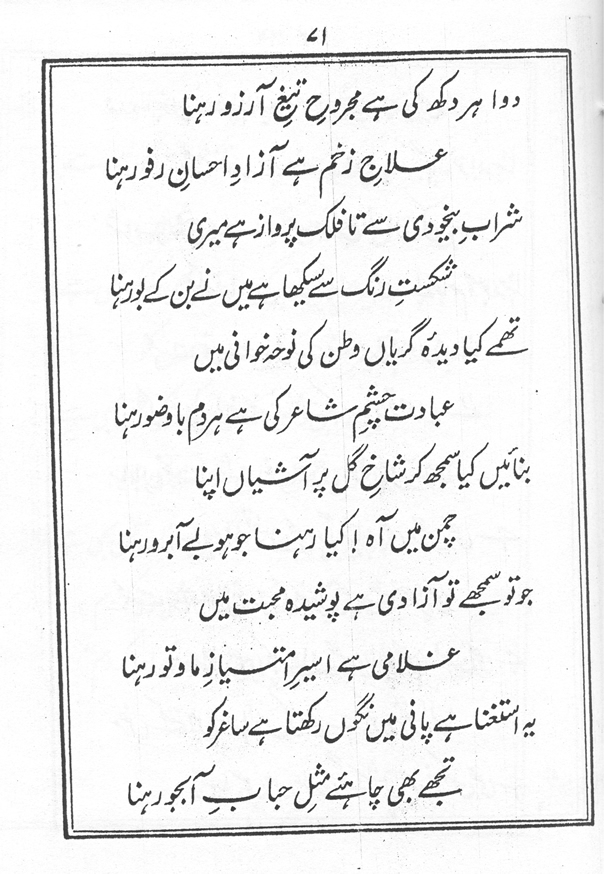 ۷۱
دوا ہر دکھ کی ہے مجروحِ تیغِ آرزو رہنا
علاجِ زخم ہے آزادِ احسانِ رفو رہنا
شرابِ بیخودی سے تا فلک پرواز ہے میری
شکستِ رنگ سے سیکھا ہے میں نے بن کے بو رہنا
تھمے کیا دیدۂ گریاں وطن کی نوحہ خوانی میں
عبادت چشمِ شاعر کی ہے ہر دم باوضو رہنا
بنائیں کیا سمجھ کر شاخِ گل پر آشیاں اپنا
چمن میں آہ! کیا رہنا جو ہو بے آبرو رہنا
جو تو سمجھے تو آزادی ہے پوشیدہ محبت میں
غلامی ہے اسیرِ امتیازِ ما و تو رہنا
یہ استغنا ہے پانی میں نگوں رکھتا ہے ساغر کو
تجھے بھی چاہئے مثلِ حبابِ آبجو رہنا